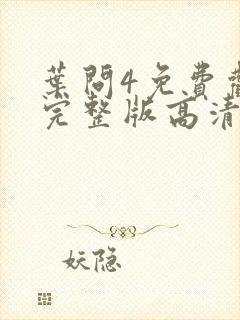 葉問4免費
完整版高清
妖隐